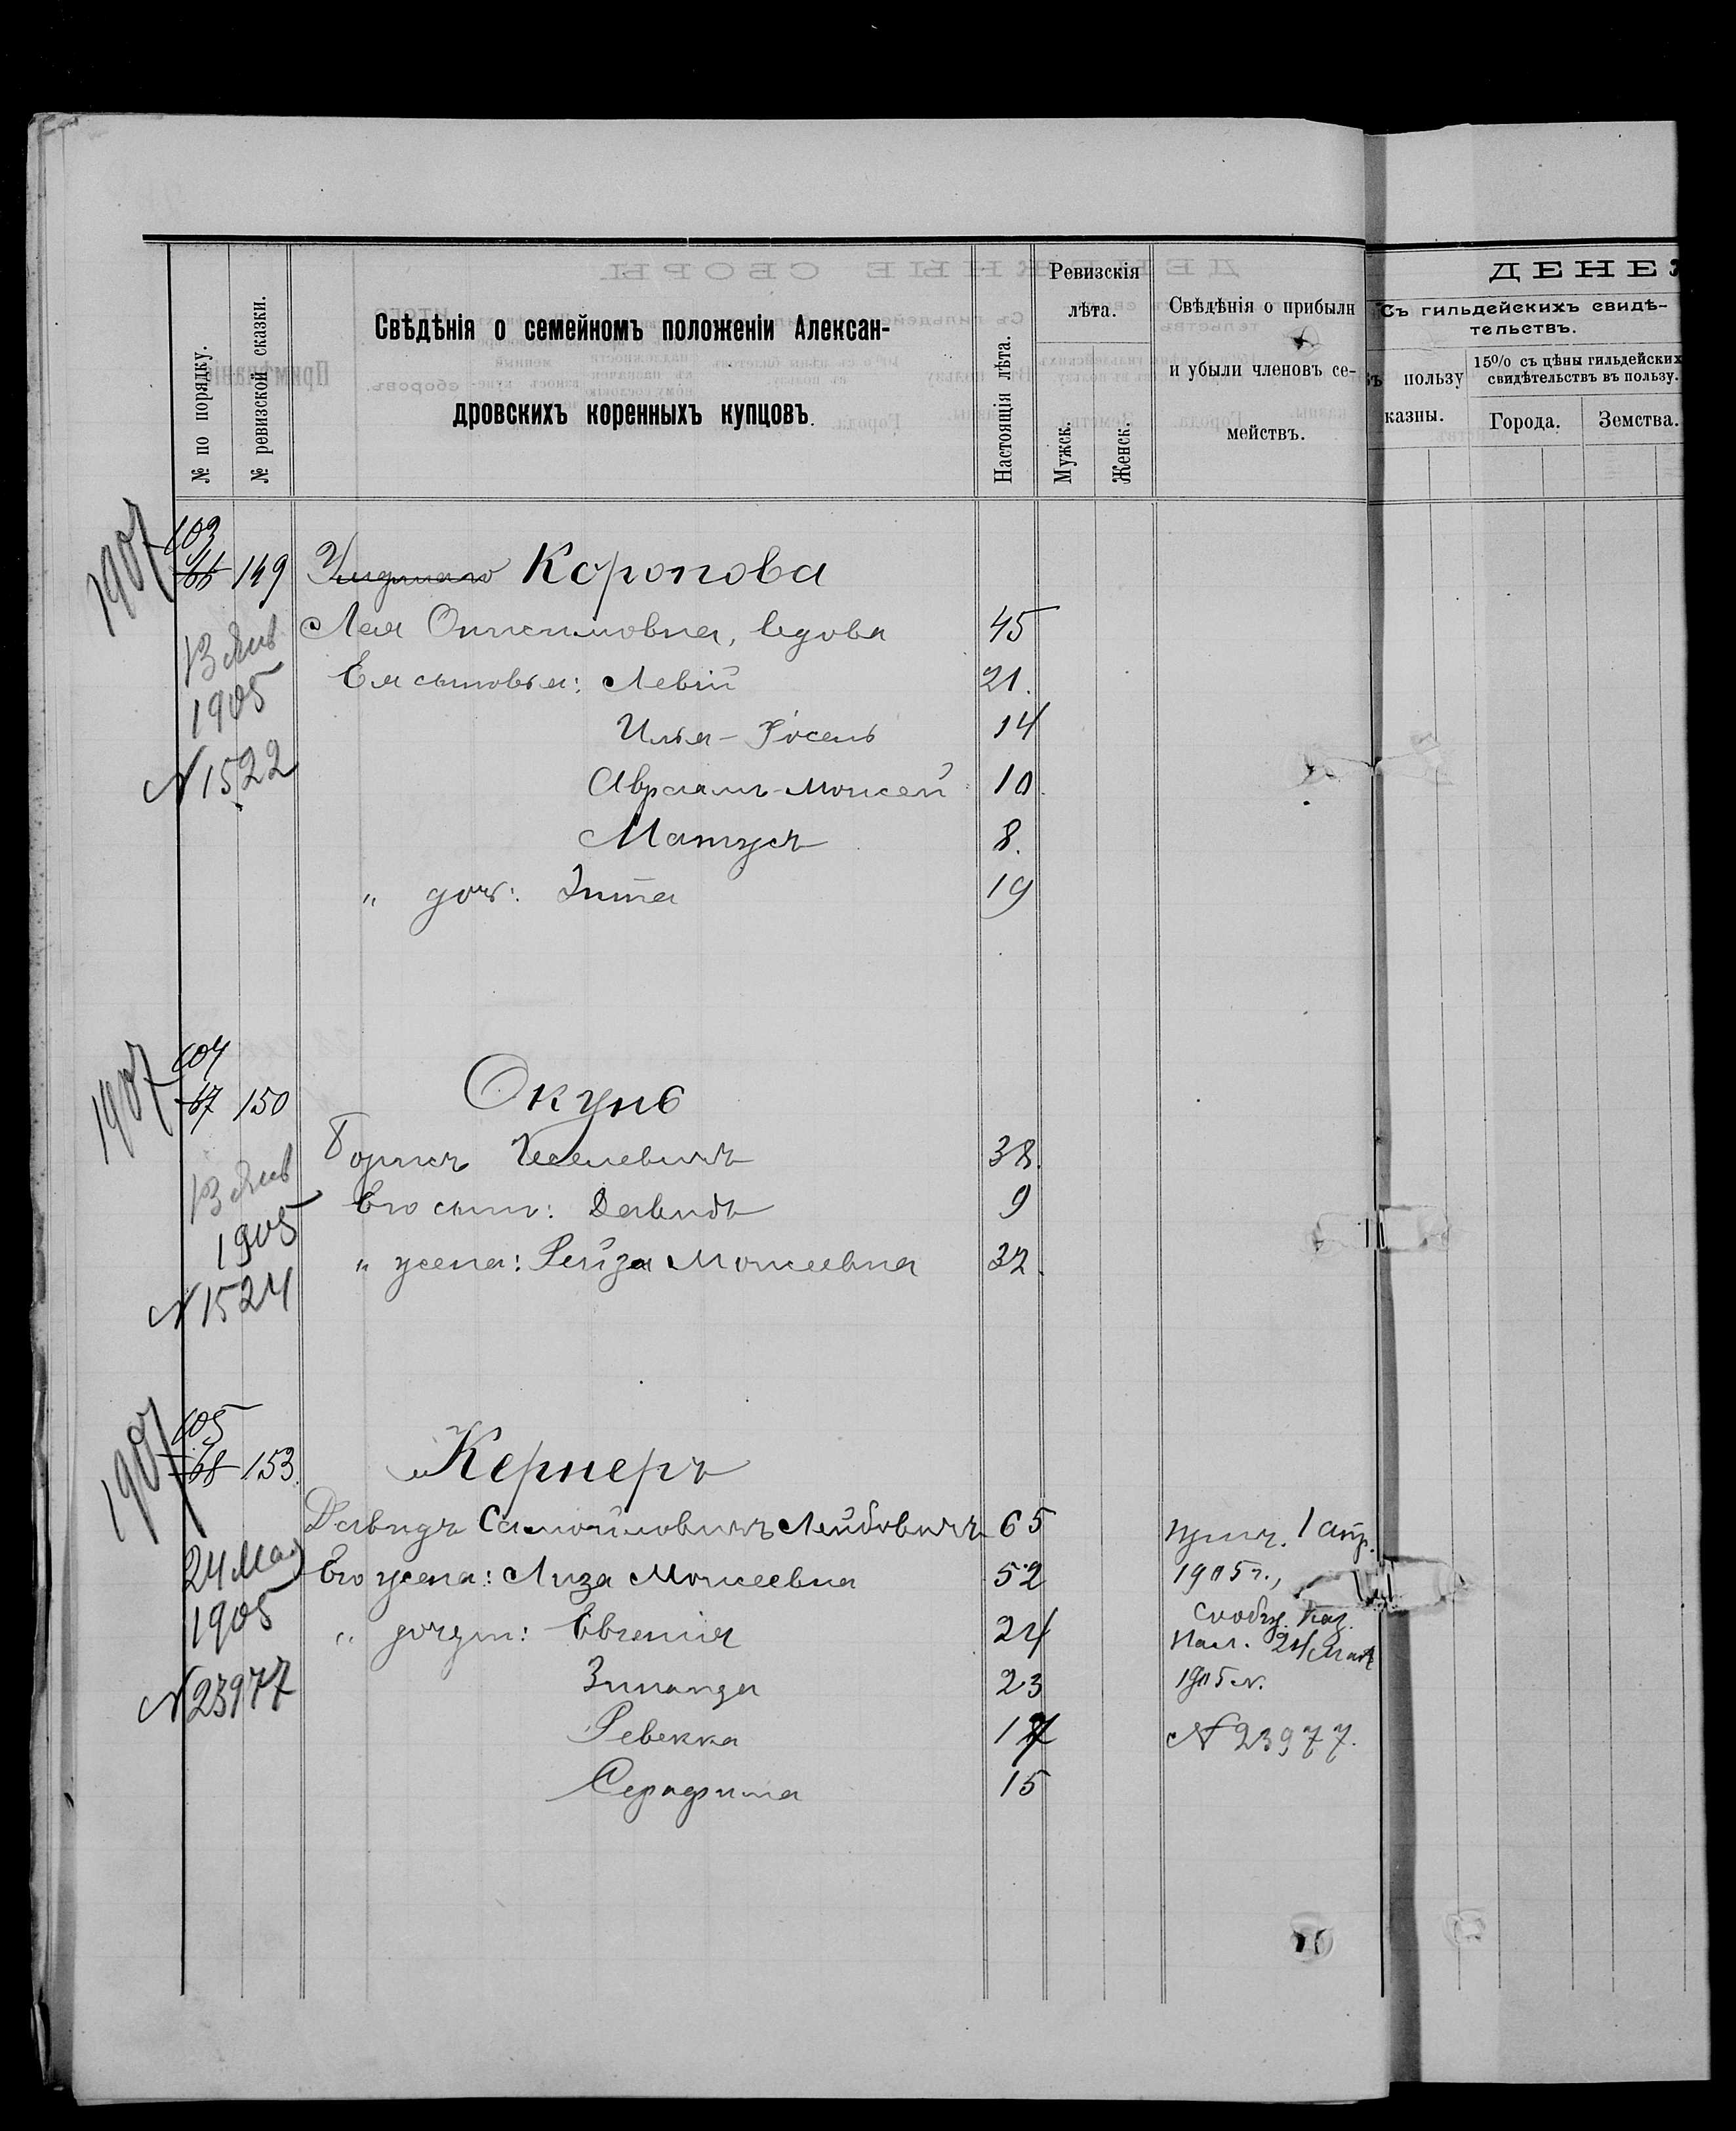 ДЕНЕЖ
Ревизскія
лѣта.
Свѣдѣнія о семейномъ положеніи Алексан-
дровскихъ коренныхъ купцовъ.
№ по порядку.
№ ревизской сказки.
Настоящія лѣта.
Мужск.
Женск.
Свѣдѣнія о прибыли
и убыли членовъ се-
мействъ.
Съ гильдейскихъ свидѣ-
тельствъ.
Въ пользу
казны.
15% съ цѣны гильдейских
свидѣтельствъ въ пользу.
Города. Земства.
1907 103
66 149 Коропова
Лея Онисимовна, вдова 45
13 Янв
1905
Ея сыновья: Левій 21.
Илья-Іосель 14
N 1522
Авраамъ-Моисей 10.
Матусъ 8.
" доч: Зита 19
1907 104
67 150 Окунь
Борисъ 38.
13 Янв
Его сынъ: Давидъ 9
1905
" жена: Рейза Моисеевна 32.
N 1524
1907 105
68 153. Кернеръ
Давидъ Самойловичъ Лейбовичъ 65 прич. 1 апр.
24 Мая
Его жена: Лиза Моисеевна 52 1905 г.,
1905
" дочери: Евгенія 24 сообщ. Каз.
Пал. 24 Мая
Зинаида 23 1905 г.
N 23977
Ревекка 17 N 23977.
Серафима 15